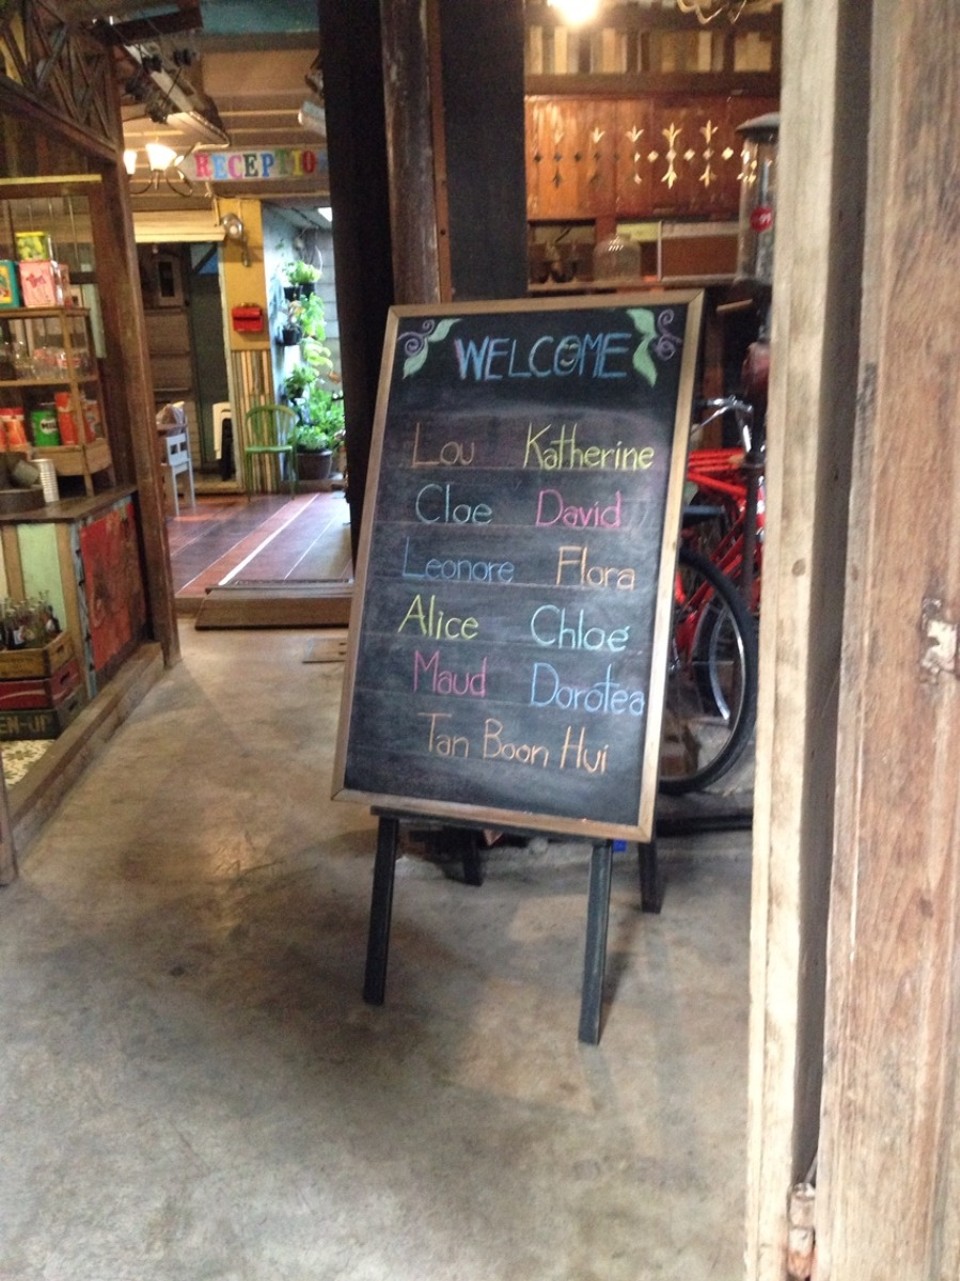 RECEPTIO
WELCOME
Lou Katherine
Cloe David
Leonore Flora
Alice Chloé
Maud Dorotea
Tan Boon Hui